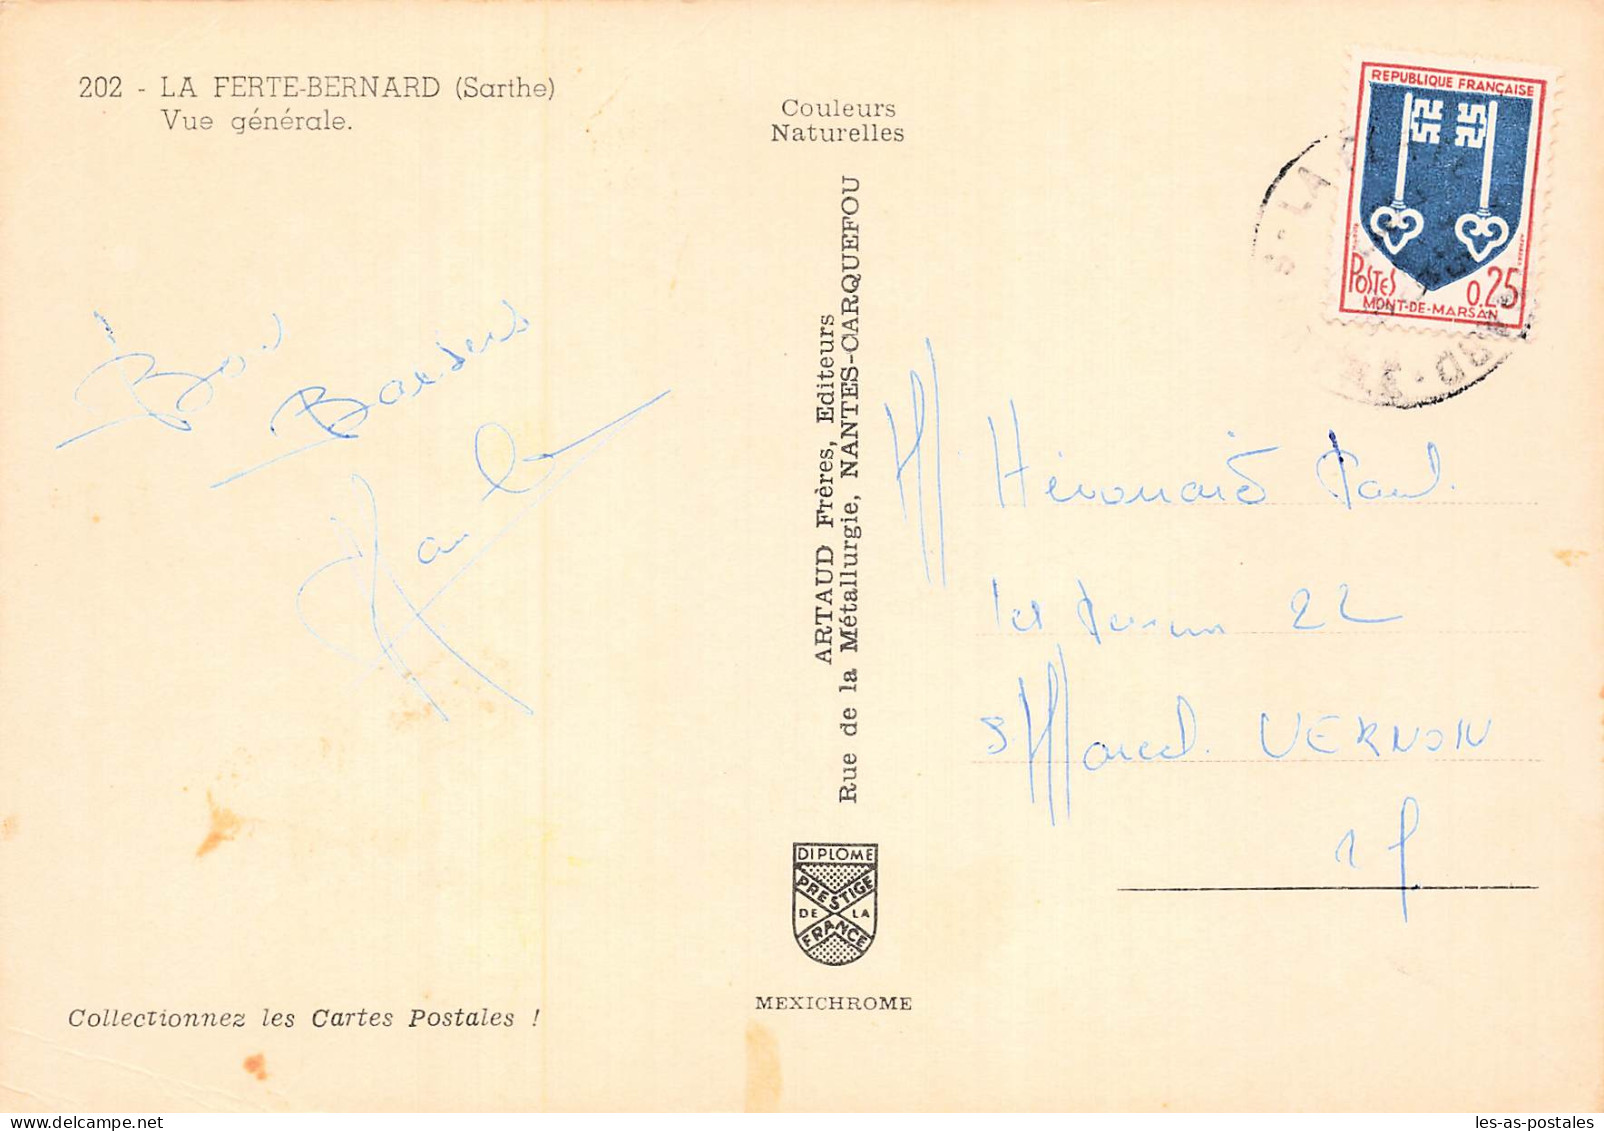 202 - LA FERTE-BERNARD (Sarthe)
Vue générale.
Couleurs
Naturelles
REPUBLIQUE FRANÇAISE
POSTES
0.25
MONT-DE-MARSAN
LA
Bons
Baisers
ARTAUD Frères, Editeurs
Rue de la Métallurgie, NANTES-CARQUEFOU
M Hérouard Paul.
les 22
St Marcel. VERNON
27
DIPLOME
PRESTIGE
DE LA
FRANCE
MEXICHROME
Collectionnez les Cartes Postales !
les-as-postales